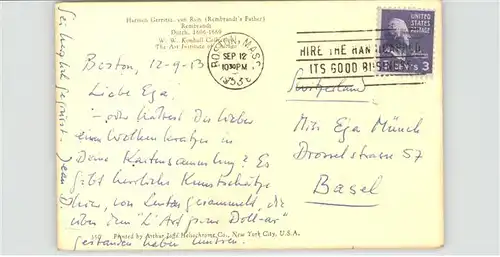 Harmen Gerritsz. van Rijn (Rembrandt's Father)
Rembrandt
Dutch, 1606-1669
W. W. Kimball Collection
The Art Institute of Chicago
BOSTON, MASS.
SEP 12
1030PM
1953
HIRE THE HANDICAPPED
ITS GOOD BUSINESS
UNITED STATES
POSTAGE
3
Boston, 12-9-53
Liebe Ega!
– oder hättest Du lieber
einen Wolkenkratzer in
Deine Kartensammlung? Es
gibt herrliche Kunstschätze
hier, von Leuten gesammelt, die
über den "L'Art pour Doll-ar"
gestanden haben müssen.
Sei herzlich gegrüsst. Jean
Switzerland
Miss Ega Münch
Drosselstrasse 57
Basel
Printed by Arthur Jaffé Heliochrome Co., New York City, U.S.A.